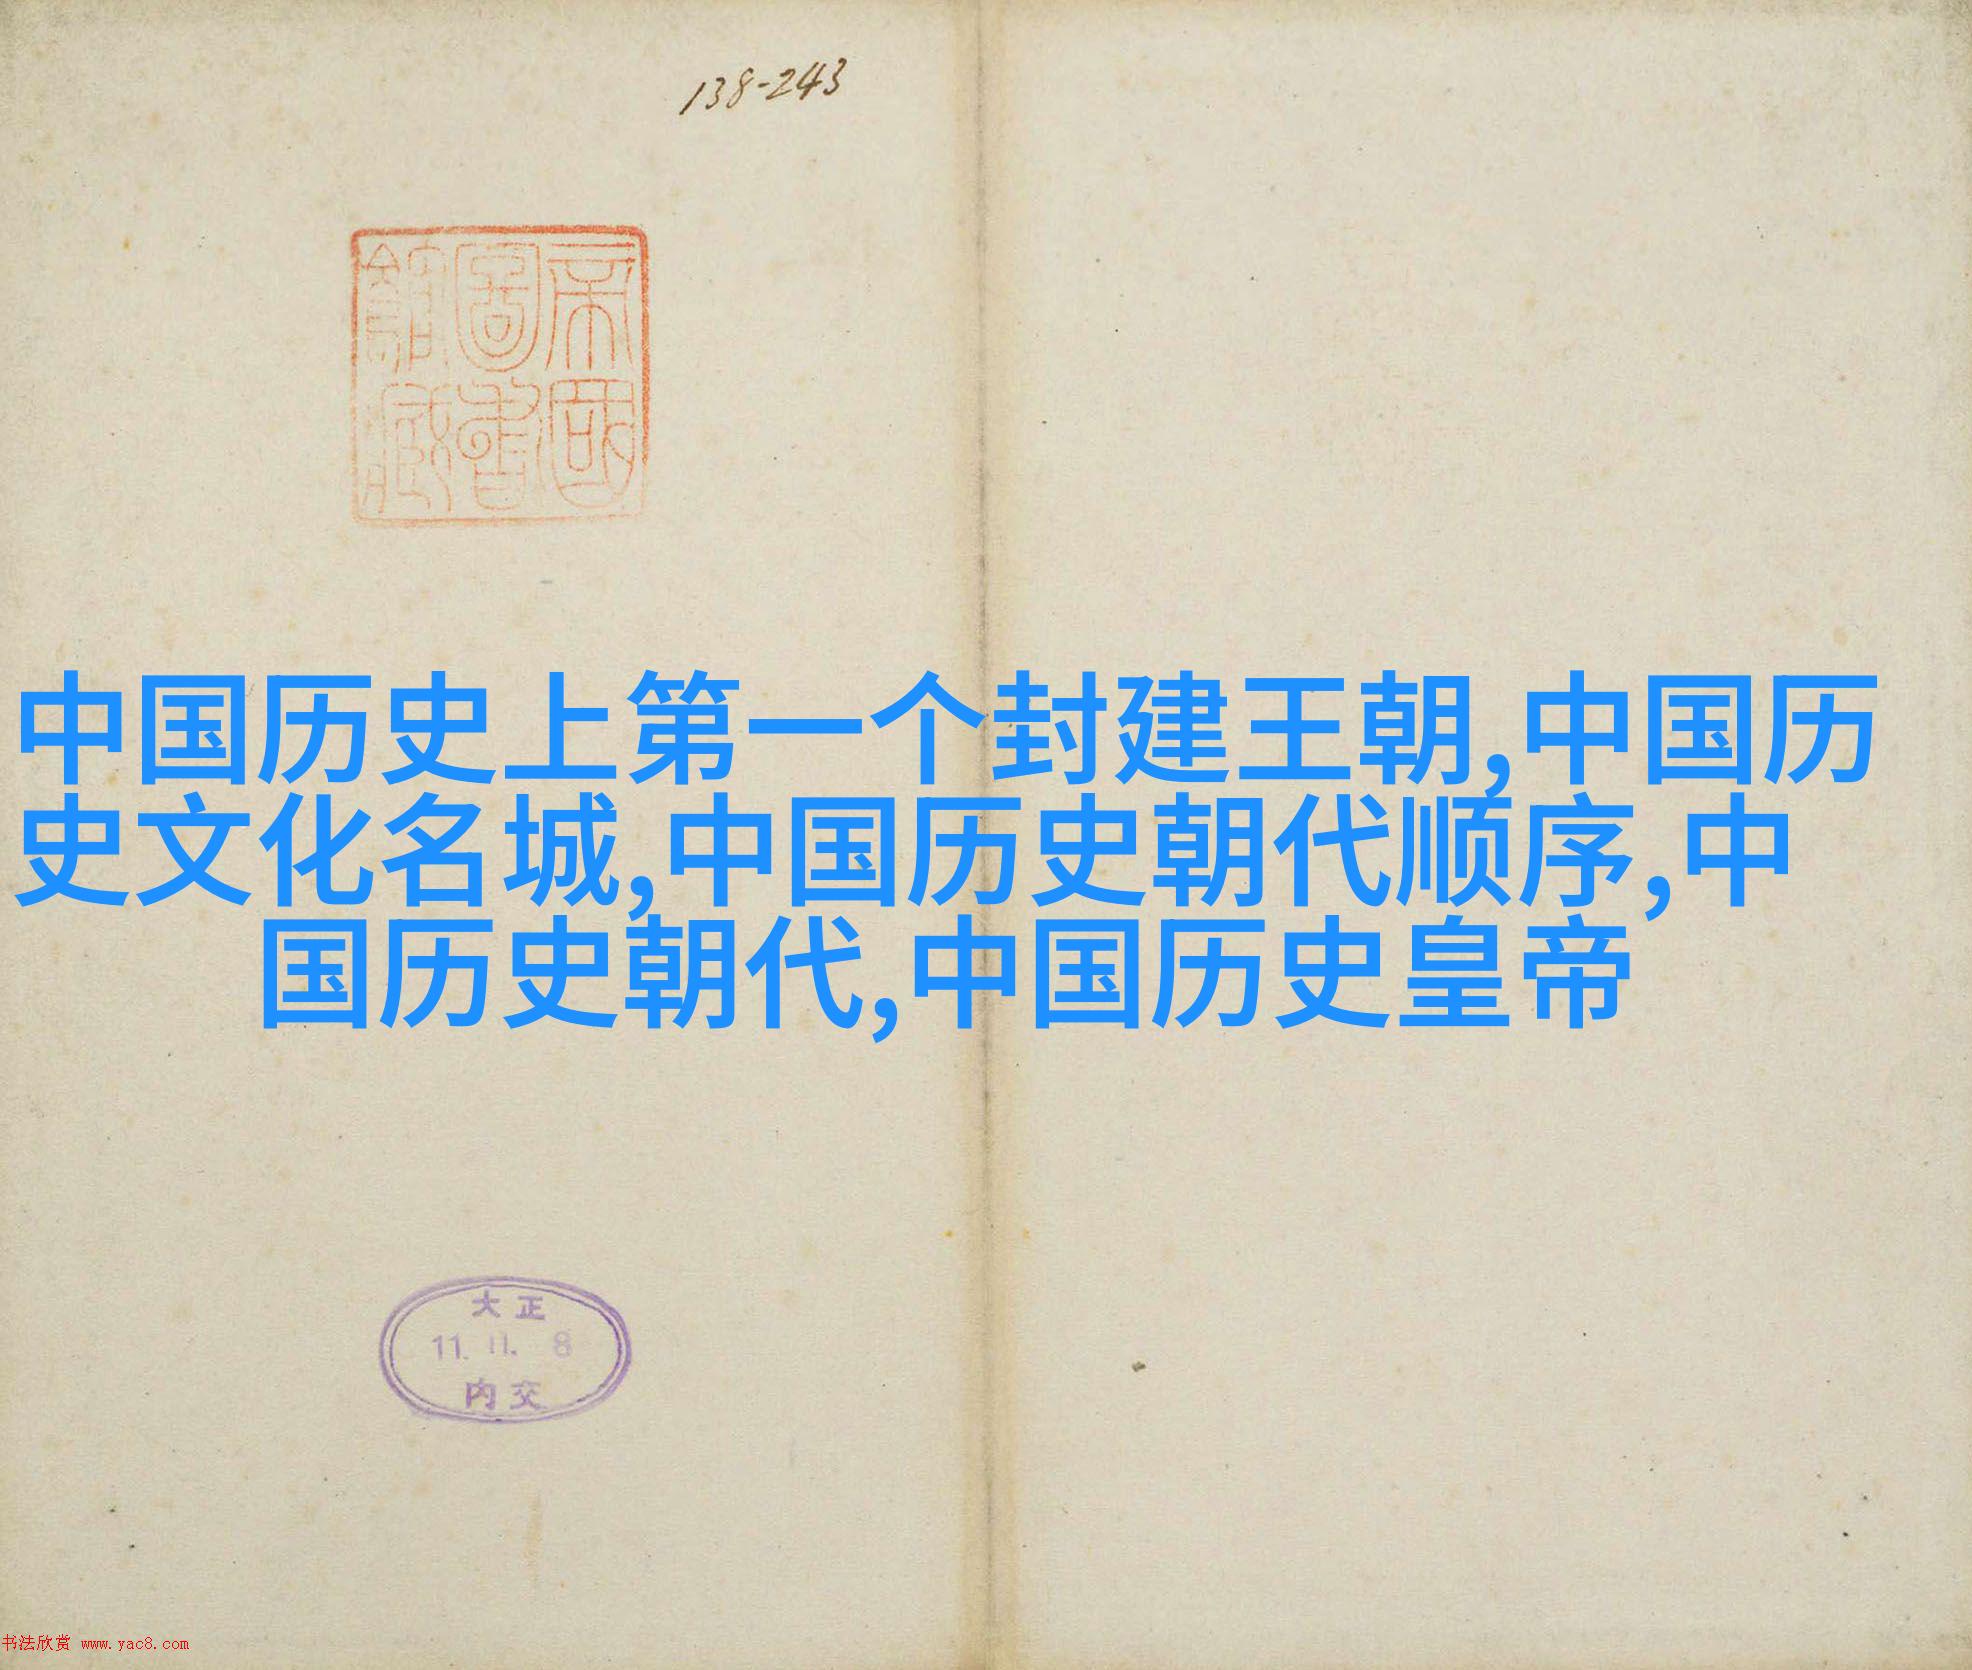 138-243
帝國
圖書
館藏
中国历史上第一个封建王朝,中国历
史文化名城,中国历史朝代顺序,中
国历史朝代,中国历史皇帝
大正
11. 11. 8
内交
书法欣赏 www.yac8.com